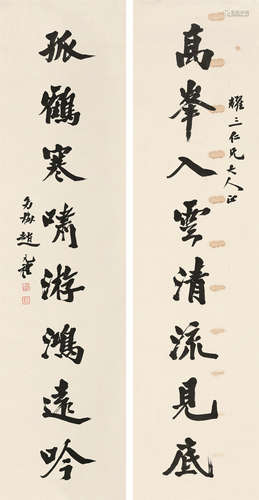 高峯入雲清流見底
耀三仁兄大人正
孤鶴寒嘯游鴻遠吟
趙